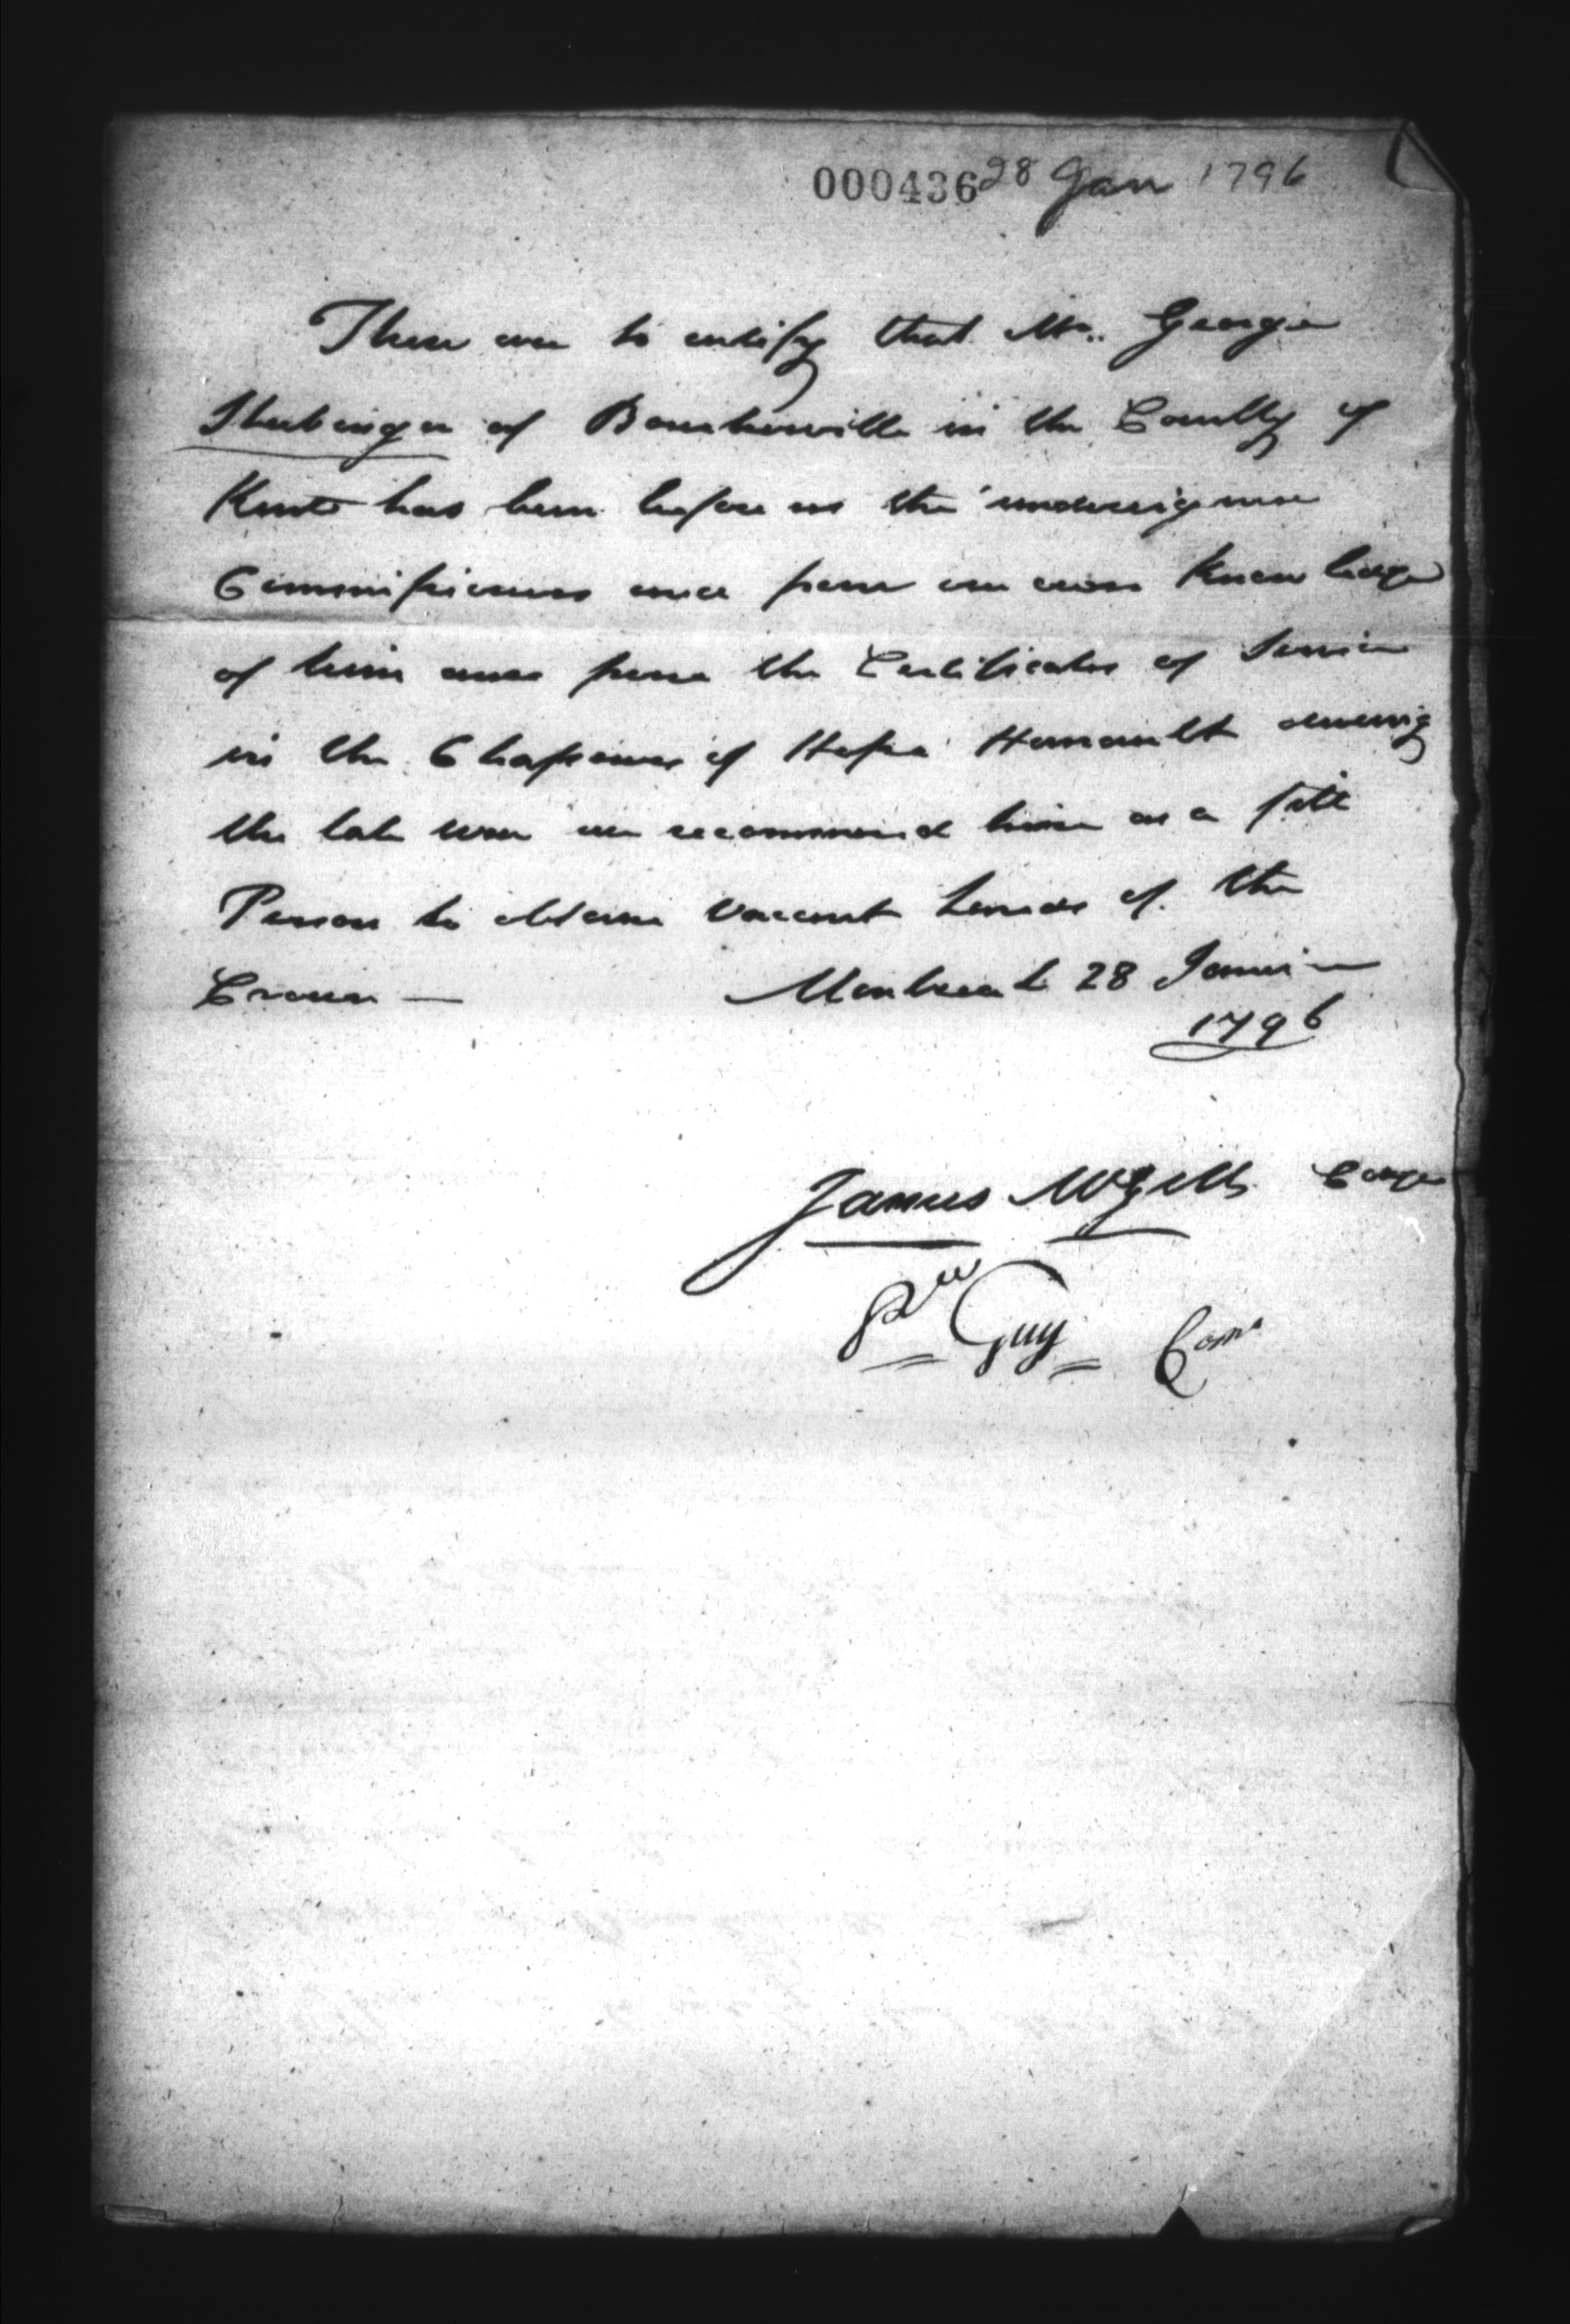 000436 28 Jan 1796
These are to certify that Mr. George
Stubinger of Boucherville in the County of
Kent has been before us the undersigned
Commissioners and from our own Knowledge
of him and from the Certificates of Service
in the Chasseurs of Hesse Hanault during
the late war we recommend him as a fitt
Person to obtain Vacant Lands of the
Crown — Montreal 28 Janvier
1796
James McGill
Prre Guy Comr